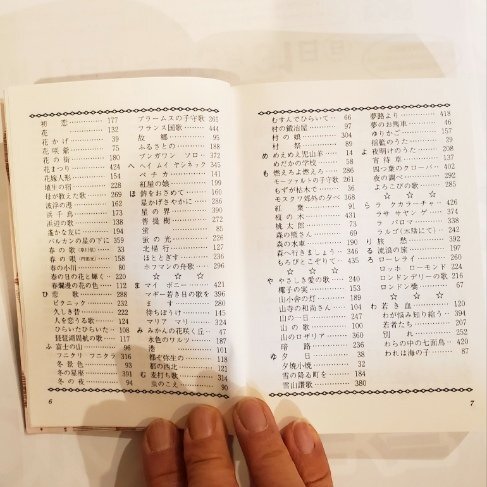 初恋 177
花 132
花かげ 39
花咲爺 75
花の街 180
花まつり 424
花嫁人形 154
埴生の宿 228
母が教えた歌 269
波浮の港
浜千鳥 173
浜辺の歌
遥かな友に 194
バルカンの星の下に 359
春の歌
春の唄
春の小川 86
春の日の花と輝く 220
春爛漫の花の色 112
ひ 悲歌 288
ピクニック 232
久しき昔 222
人を恋うる歌
ひらいたひらいた 108
琵琶湖周航の歌
ふ 富士の山 98
フニクリ フニクラ 316
冬景色 93
冬の星座 391
冬の夜 94
ブラームスの子守歌 261
フランス国歌 444
故郷 95
ふるさとの 188
ブンガワン ソロ 372
へ ヘイ ムイ ヤンネック 345
ペチカ 141
紅屋の娘 199
ほ 鉾をおさめて 160
星かげさやかに 386
星の界 390
菩提樹 272
蛍
蛍の光 226
北帰行 127
ほととぎす 236
ホフマンの舟歌
☆ ☆ ☆
ま マイ ボニィ 421
マギー若き日の歌を 306
ます
待ちぼうけ 145
マリア マリ 324
み みかんの花咲く丘 47
水色のワルツ 187
港
都ぞ弥生の 118
都の西北
む 麦打ち歌 314
虫のこえ 90
6
むすんでひらいて 66
村の鍛冶屋 97
村の娘 304
村祭 89
め めえめえ児山羊 14
めだかの学校 58
も 燃えろよ燃えろ 286
モーツァルトの子守歌 261
もずが枯木で 36
モスクワ郊外の夕べ 368
紅葉 91
樅の木 431
桃太郎 73
森の熊さん 69
森の水車 190
森へ行きましょう 346
もろびとこぞりて 435
☆ ☆ ☆
や やさしき愛の歌 240
椰子の実 153
山小舎の灯 189
山寺の和尚さん
山の一日 247
山の歌 100
山のロザリア 360
暗路 236
ゆ 夕日 38
夕焼小焼 32
雪の降る町を 184
雪山讃歌 380
夢路より 418
夢のお馬車 46
ゆりかご 157
揺籃のうた 29
よ 夜明けのうた 208
宵待草 137
四つ葉のクローバー 402
夜の調べ 292
よろこびの歌
☆ ☆ ☆
ら ラ クカラーチャ 426
ラサ ササヤンゲ
ラ パロマ 338
ラルゴ(木陰にて) 240
り 旅愁 392
る 流浪の旅 197
ろ ローレライ 269
ロッホ ローモンド 224
ロンドンデリーの歌 216
ロンドン橋 67
☆ ☆ ☆
わ 若き血 120
わが悩み知り給う 394
若者たち 207
別れ 252
わらの中の七面鳥 420
われは海の子 87
7